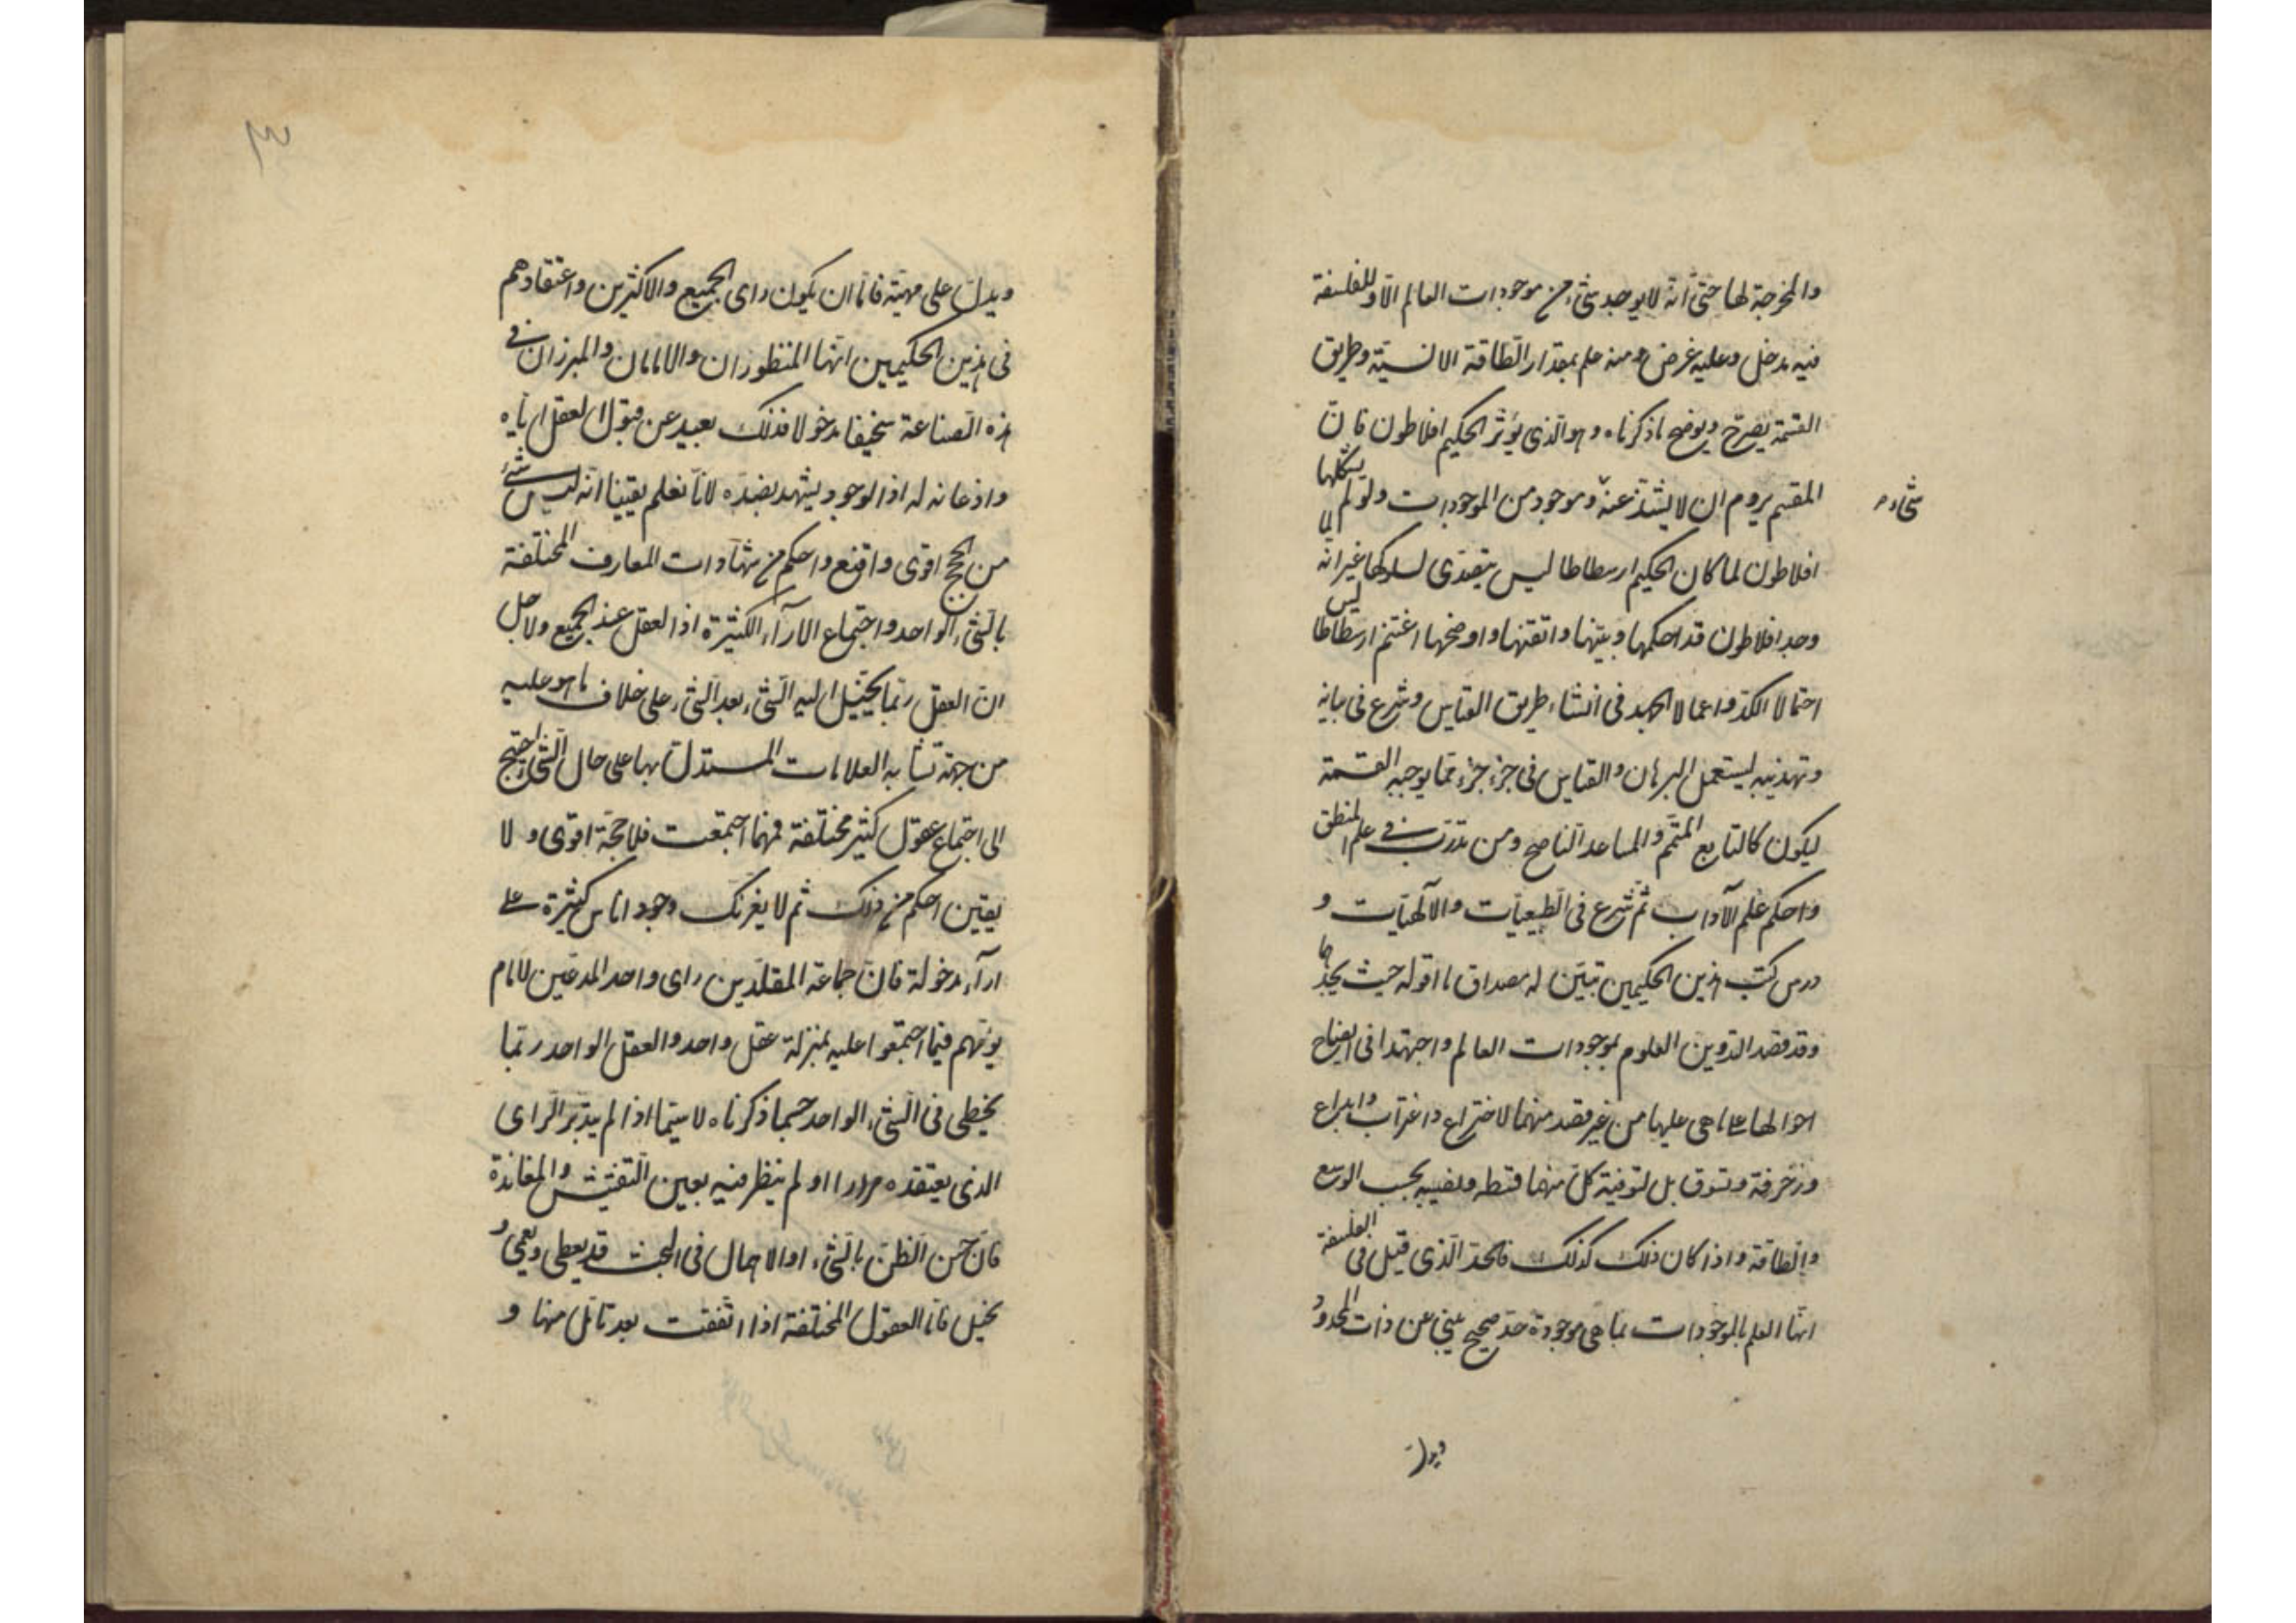 والمخرجة لها حتى انه لا يوجد شئ من موجودات العالم الا وللفلسفة
فيه مدخل وعليه غرض ومنه علم بمقدار الطاقة الانسية وطريق
القسمة يصرح ويوضح ما ذكرناه وهو الذى يؤثر الحكيم افلاطون فان
المقسم يروم ان لا يشذ عنه وموجود من الموجودات ولو لم يسلكها
شئ م
افلاطون لما كان الحكيم ارسطاطاليس يتصدى لسلوكها غير انه لما
وجد افلاطون قد احكمها وبينها واتقنها واوضحها اغتنم ارسطاطاليس
احتمالا الكد واعمالا الجهد فى انشاء طريق القياس وشرع فى بيانه
وتهذيبه ليستعمل البرهان والقياس فى جزء جزء مما يوجبه القسمة
ليكون كالتابع المتمم والمساعد الناصح ومن تدرب فى علم المنطق
واحكم علم الآداب ثم شرع فى الطبيعيات والالهيات و
درس كتب هذين الحكيمين تبين له مصداق ما اقوله حيث يجدهما
وقد قصد التدوين العلوم بموجودات العالم واجتهدا فى ايضاح
احوالها على ما هى عليها من غير قصد منهما لاختراع واغراب وابداع
وزخرفة وتسوق بل لتوفية كل منهما قسطه ونصيبه بحسب الوسع
والطاقة واذا كان ذلك كذلك فالحد الذى قيل فى الفلسفة
انها العلم بالموجودات بما هى موجودة حد صحيح ينبئ عن ذات المحدود
ويدل
٣
ويدل على مهيته فاما ان يكون راى الجميع والاكثرين واعتقادهم
فى هذين الحكيمين انهما المنظوران والامامان والمبرزان فى
هذه الصناعة سخيفا مدخولا فذلك بعيد عن قبول العقل اياه
واذعانه له اذ الوجود يشهد بضده لانا نعلم يقينا انه ليس شئ
من الحجج اقوى واقنع واحكم من شهادات المعارف المختلفة
بالشئ الواحد واجتماع الارآء الكثيرة اذ العقل عند الجميع ولاجل
ان العقل ربما يخيل اليه الشئ بعد الشئ على خلاف ما هو عليه
من جهة تشابه العلامات المستدل بها على حال الشئ احتيج
الى اجتماع عقول كثير مختلفة فمهما اجتمعت فلا حجة اقوى ولا
يقين احكم من ذلك ثم لا يغرنك وجود اناس كثيرة على
ارآء مدخولة فان جماعة المقلدين راى واحد المدعين لامام
يؤمهم فيما اجتمعوا عليه بمنزلة عقل واحد والعقل الواحد ربما
يخطى فى الشئ الواحد حسبما ذكرناه لا سيما اذا لم يتدبر الراى
الذى يعتقده مرارا او لم ينظر فيه بعين التفتيش والمعاندة
فان حسن الظن بالشئ او الاهمال فى البحث قد يغطى ويعمى و
يخيل فاما العقول المختلفة اذا اتفقت بعد تامل منها و